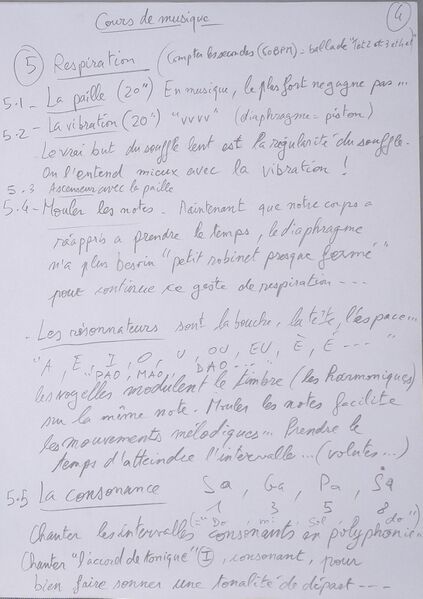 Cours de musique
4
5 Respiration (compter les secondes (60BPM) = ballade "1et 2 et 3 et 4 et"
5.1 - La paille (20") En musique, le plus fort ne gagne pas ...
5.2 - La vibration (20") "vvvv" (diaphragme = piston)
Le vrai but du souffle lent est la régularité du souffle.
On l'entend mieux avec la vibration !
5.3 Ascenseur avec la paille
5.4 - Mouler les notes. Maintenant que notre corps a
réappris a prendre le temps, le diaphragme
n'a plus besoin "petit robinet presque fermé"
pour continue ce geste de respiration ---
- Les résonnateurs sont la bouche, la tête, l'espace...
"A, E, I, O, U, OU, EU, È, É --- "
PAO, MAO, DAO ...
les voyelles modulent le timbre (les harmoniques)
sur la même note. Mouler les notes facilite
les mouvements mélodiques... Prendre le
temps d'atteindre l'intervalle ... (volutes ...)
5.5 La consonance Sa, Ga, Pa, Sa
1 3 5 8
(= "Do, mi, Sol, do")
Chanter les intervalles consonants en polyphonie
Chanter "l'accord de tonique" I, consonant, pour
bien faire sonner une tonalité de départ ---